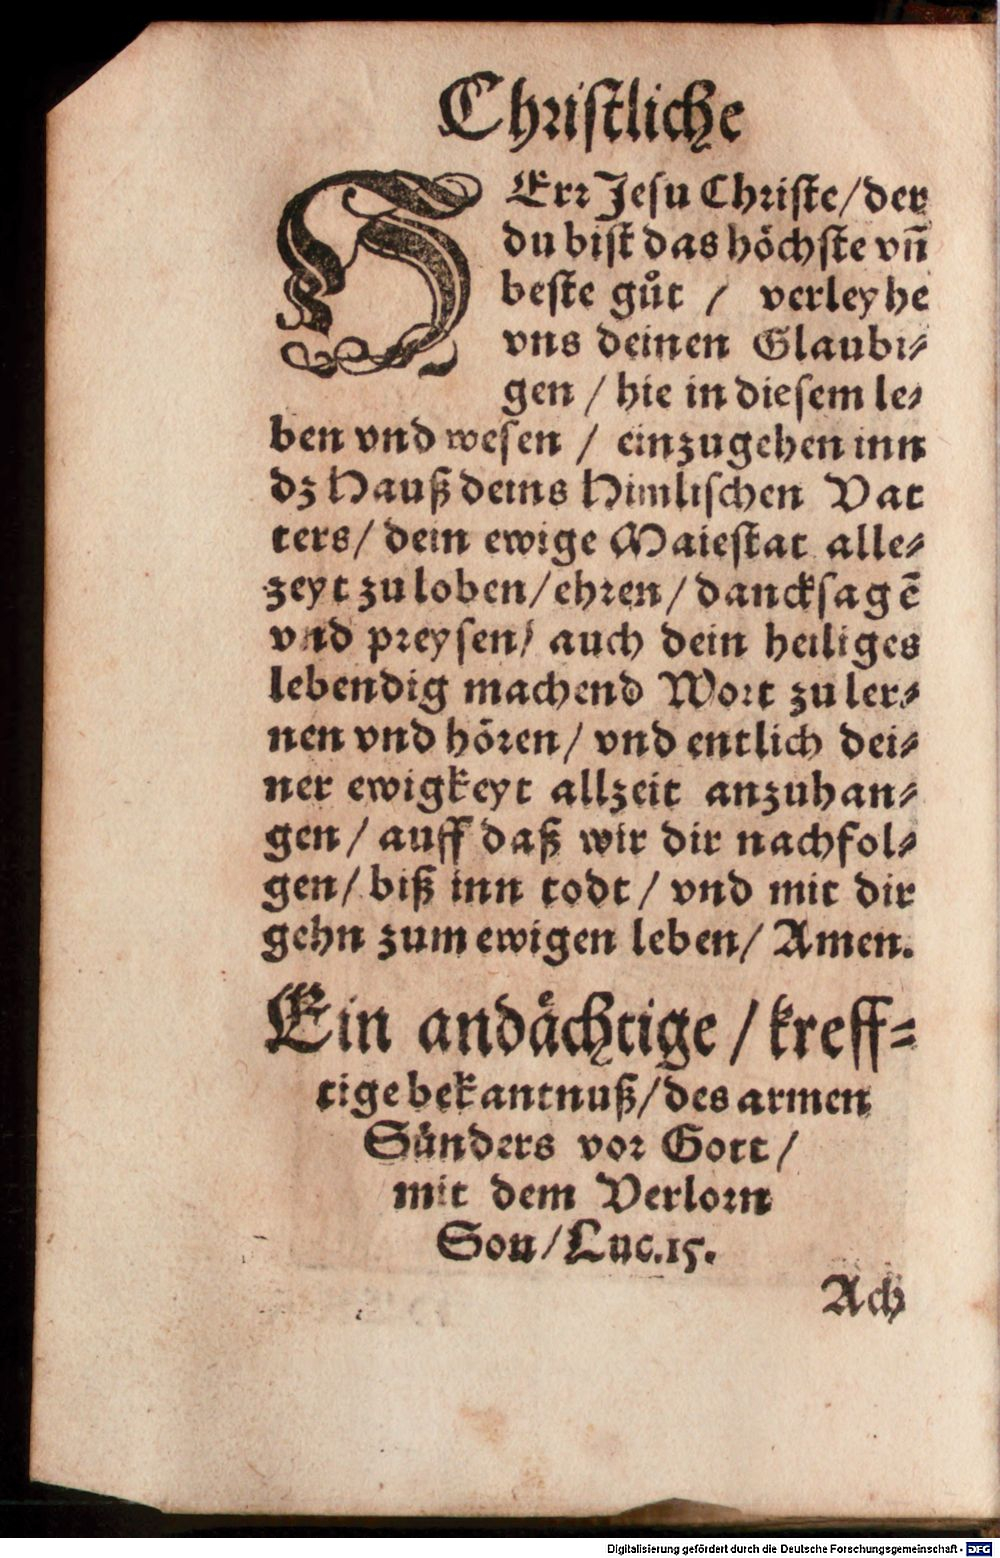 Christliche
HErr Jesu Christe/der
du bist das höchste vñ
beste gůt / verleyhe
vns deinen Glaubi-
gen / hie in diesem le-
ben vnd wesen / einzugehen inn
dz Hauß deins Himlischen Vat
ters/ dein ewige Maiestat alle-
zeyt zu loben/ ehren/ dancksagē
vnd preysen/ auch dein heiliges
lebendig machend Wort zu ler-
nen vnd hören/ vnd entlich dei-
ner ewigkeyt allzeit anzuhan-
gen/ auff daß wir dir nachfol-
gen/ biß inn todt/ vnd mit dir
gehn zum ewigen leben/ Amen.
Ein andaͤchtige / kreff-
tige bekantnuß/des armen
Sünders vor Gott/
mit dem Verlorn
Son/Luc.15.
Ach
Digitalisierung gefördert durch die Deutsche Forschungsgemeinschaft - DFG